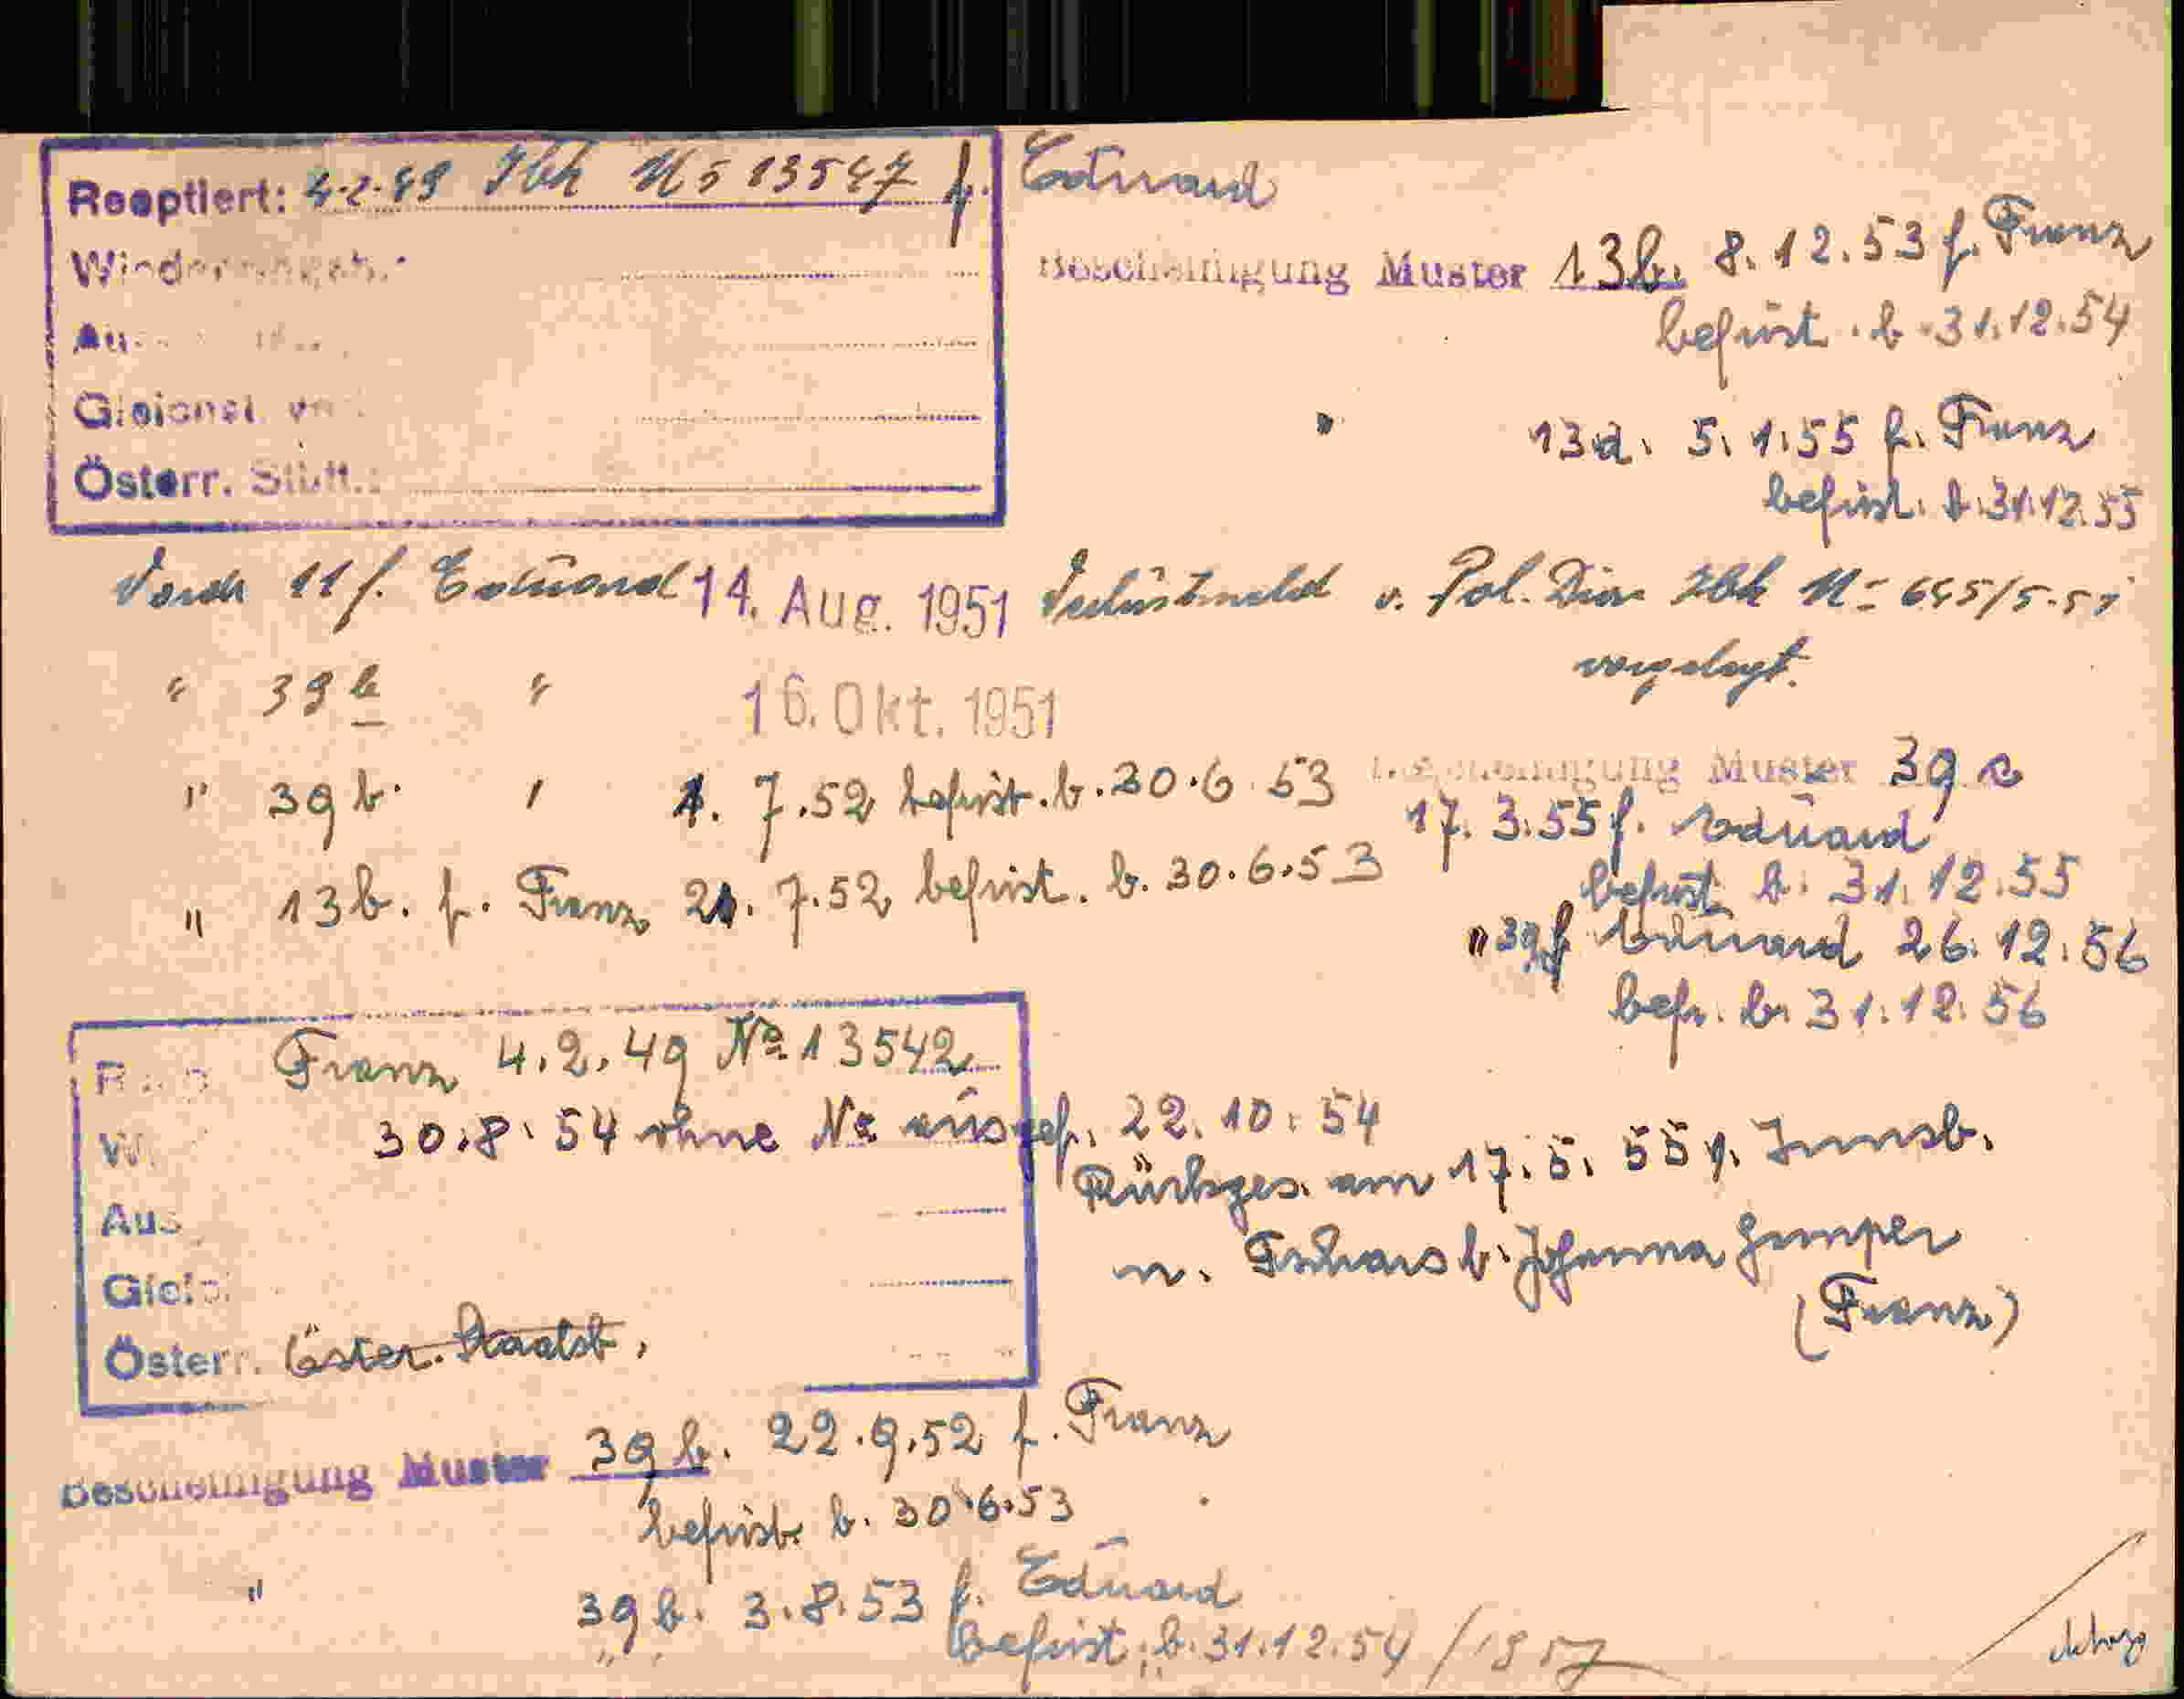 Reoptiert: 4.2.49 Ibk No 13547 f. Eduard
Österr.
Bescheinigung Muster 13b. 8.12.53 f. Franz
befrist. b. 31.12.54
" 13a. 5.1.55 f. Franz
befrist. b. 31.12.55
11 f. Eduard 14. Aug. 1951 Verlustmeld v. Pol. Dion Ibk No 645/5.51
vorgelegt.
" 39 b " 16. Okt. 1951
" 39 b. " 1. 7.52 befrist. b. 30.6.53
" 13b. f. Franz 21. 7.52 befrist. b. 30.6.53
Bescheinigung Muster 39
17. 3.55 f. Eduard
befrist. b. 31.12.55
" 39 f Eduard 26.12.56
befr. b. 31.12.56
Franz 4.2.49 No 13542
30.8.54 ohne Nr ausgef. 22.10.54
Rückges. am 17.5.55 Innsb.
n. Tschars b. Johanna Gamper
(Franz)
Aus
Österr. Öster. Staatsb.
Bescheinigung Muster 39 b. 22.9.52 f. Franz
befrist. b. 30.6.53
" 39 b. 3.8.53 f. Eduard
Befrist. b. 31.12.54 / 1957